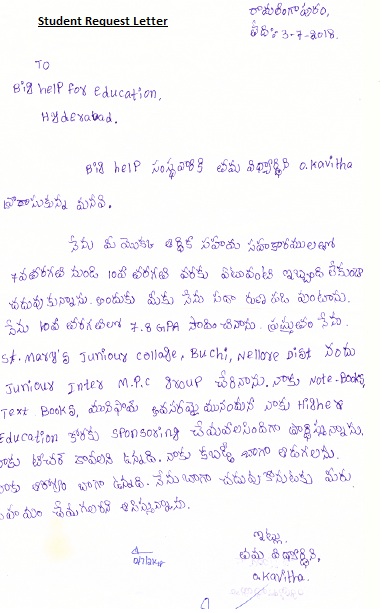 Student Request Letter
రామలింగాపురం,
తేది: 3-7-2018.
TO
Big help for Education,
Hyderabad.
Big help సంస్థవారికి తమ విద్యార్థిని O.Kavitha
వ్రాసుకున్న మనవి.
నేను మీ యొక్క ఆర్థిక సహాయ సహకారములతో
7వ తరగతి నుండి 10వ తరగతి వరకు ఎటువంటి ఇబ్బంది లేకుండా
చదువుకున్నాను. అందుకు మీకు నేను సదా రుణపడి వుంటాను.
నేను 10వ తరగతిలో 7.8 GPA సాధించినాను. ప్రస్తుతం నేను
St. Mary's Juniour Collage, Buchi, Nellore Dist నందు
Juniour Inter M.P.C group చేరినాను. నాకు Note-Books,
Text Books, యూనిఫాం అవసరమై యున్నందున నాకు Higher
Education కొరకు Sponsoring చేయవలసిందిగా ప్రార్థిస్తున్నాను.
నాకు టీచర్ కావాలని ఉన్నది. నాకు కబడ్డీ బాగా ఆడగలను.
నాకు ఆరోగ్యం బాగా ఉన్నది. నేను బాగా చదువుకొనుటకు మీరు
సహాయం చేయగలరని ఆశిస్తున్నాను.
ఇట్లు
తమ విద్యార్థిని,
O.Kavitha.